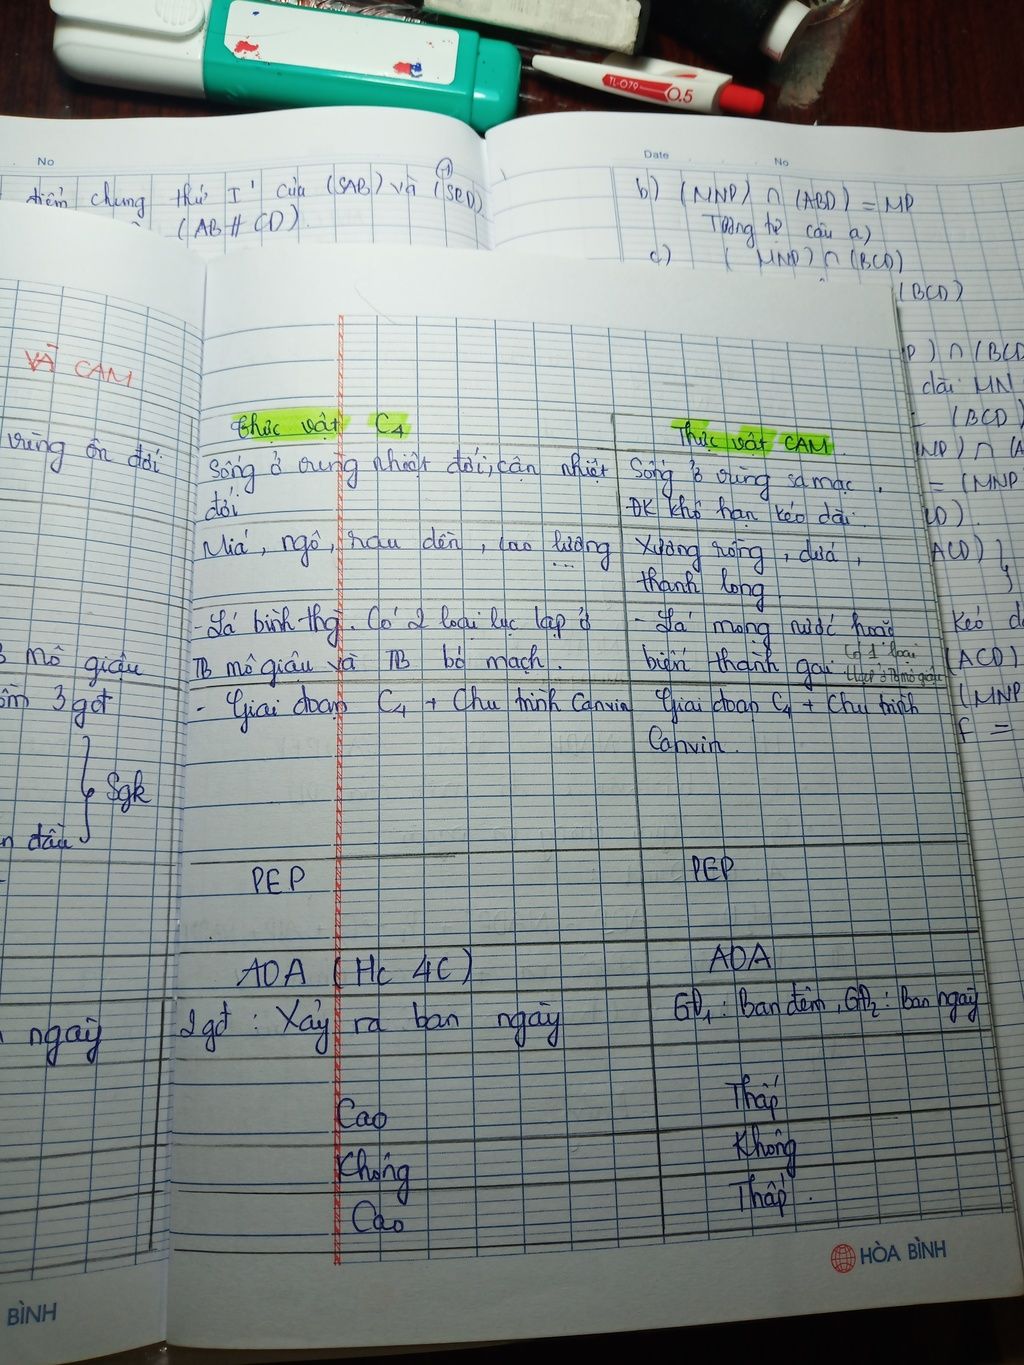 TL-079
0.5
No
điểm chung thứ I của (SAB) và (SCD)
(AB // CD).
Date
No
b) (MNP) ∩ (ABD) = MP
Tương tự câu a)
c) (MNP) ∩ (BCD)
(BCD)
P) ∩ (BCD
dài MN
(BCD)
NP) ∩ (A
= (MNP
D).
ACD)
kéo d
(ACD)
(MNP
F =
VÀ CAM
vùng ôn đới
mô giậu
3 gđ
Sgk
n đầu
ngày
BÌNH
Thực vật C4
Thực vật CAM
Sống ở vùng nhiệt đới, cận nhiệt
đới
Sống ở vùng sa mạc,
ĐK khô hạn kéo dài.
Mía, ngô, rau dền, cao lương
...
Xương rồng, dứa,
thanh long
- Lá bình thg. Có 2 loại lục lạp ở
TB mô giậu và TB bó mạch.
- Lá mọng nước hoặc
biến thành gai
Có 1 loại
lục lạp ở TB mô giậu
- Giai đoạn C4 + Chu trình Canvin
Giai đoạn C4 + Chu trình
Canvin.
PEP
PEP
AOA (Hc 4C)
AOA
2gđ : Xảy ra ban ngày
GĐ1 : Ban đêm, GĐ2 : Ban ngày
Cao
Thấp
Không
Không
Cao
Thấp.
HÒA BÌNH